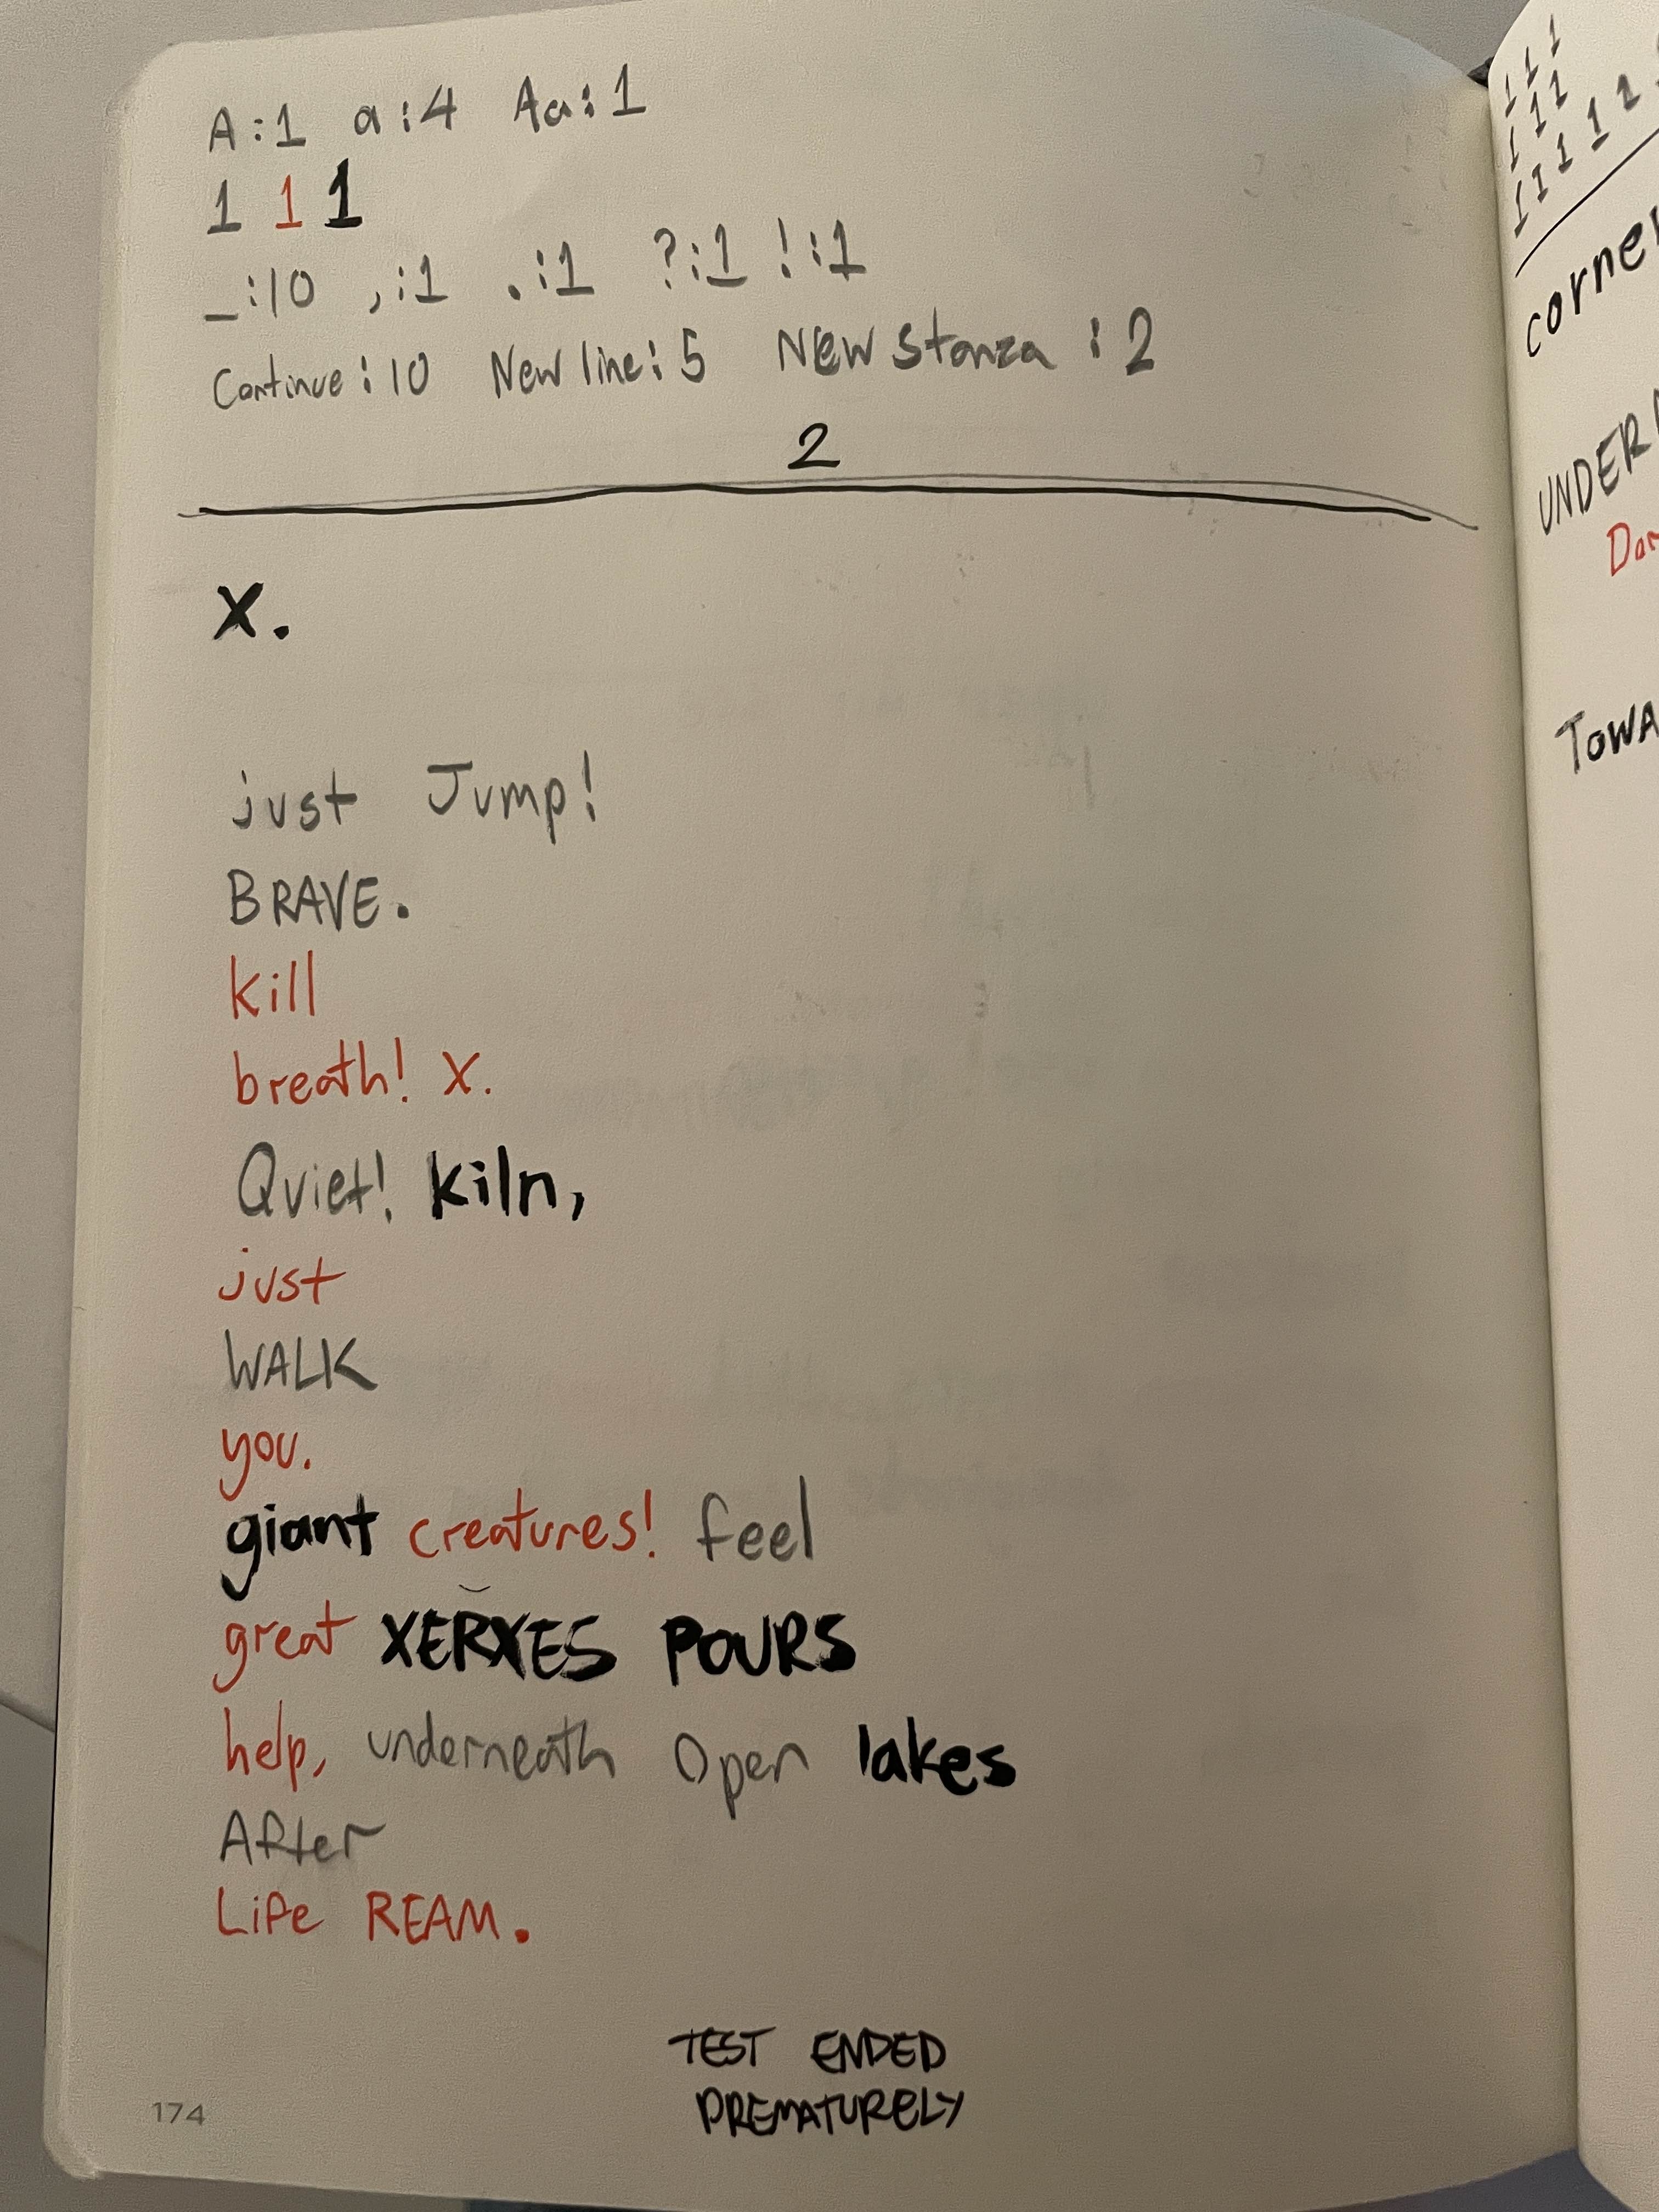 A:1 a:4 Aa:1
1 1 1
_:10 ,:1 .:1 ?:1 !:1
Continue:10 New line:5 New stanza:2
2
X.
just Jump!
BRAVE.
kill
breath! X.
Quiet! kiln,
just
WALK
you.
giant creatures! feel
great XERXES POURS
help, underneath Open lakes
After
Life REAM.
TEST ENDED
PREMATURELY
174
1 1 1
1 1 1
1 1 1 1 1